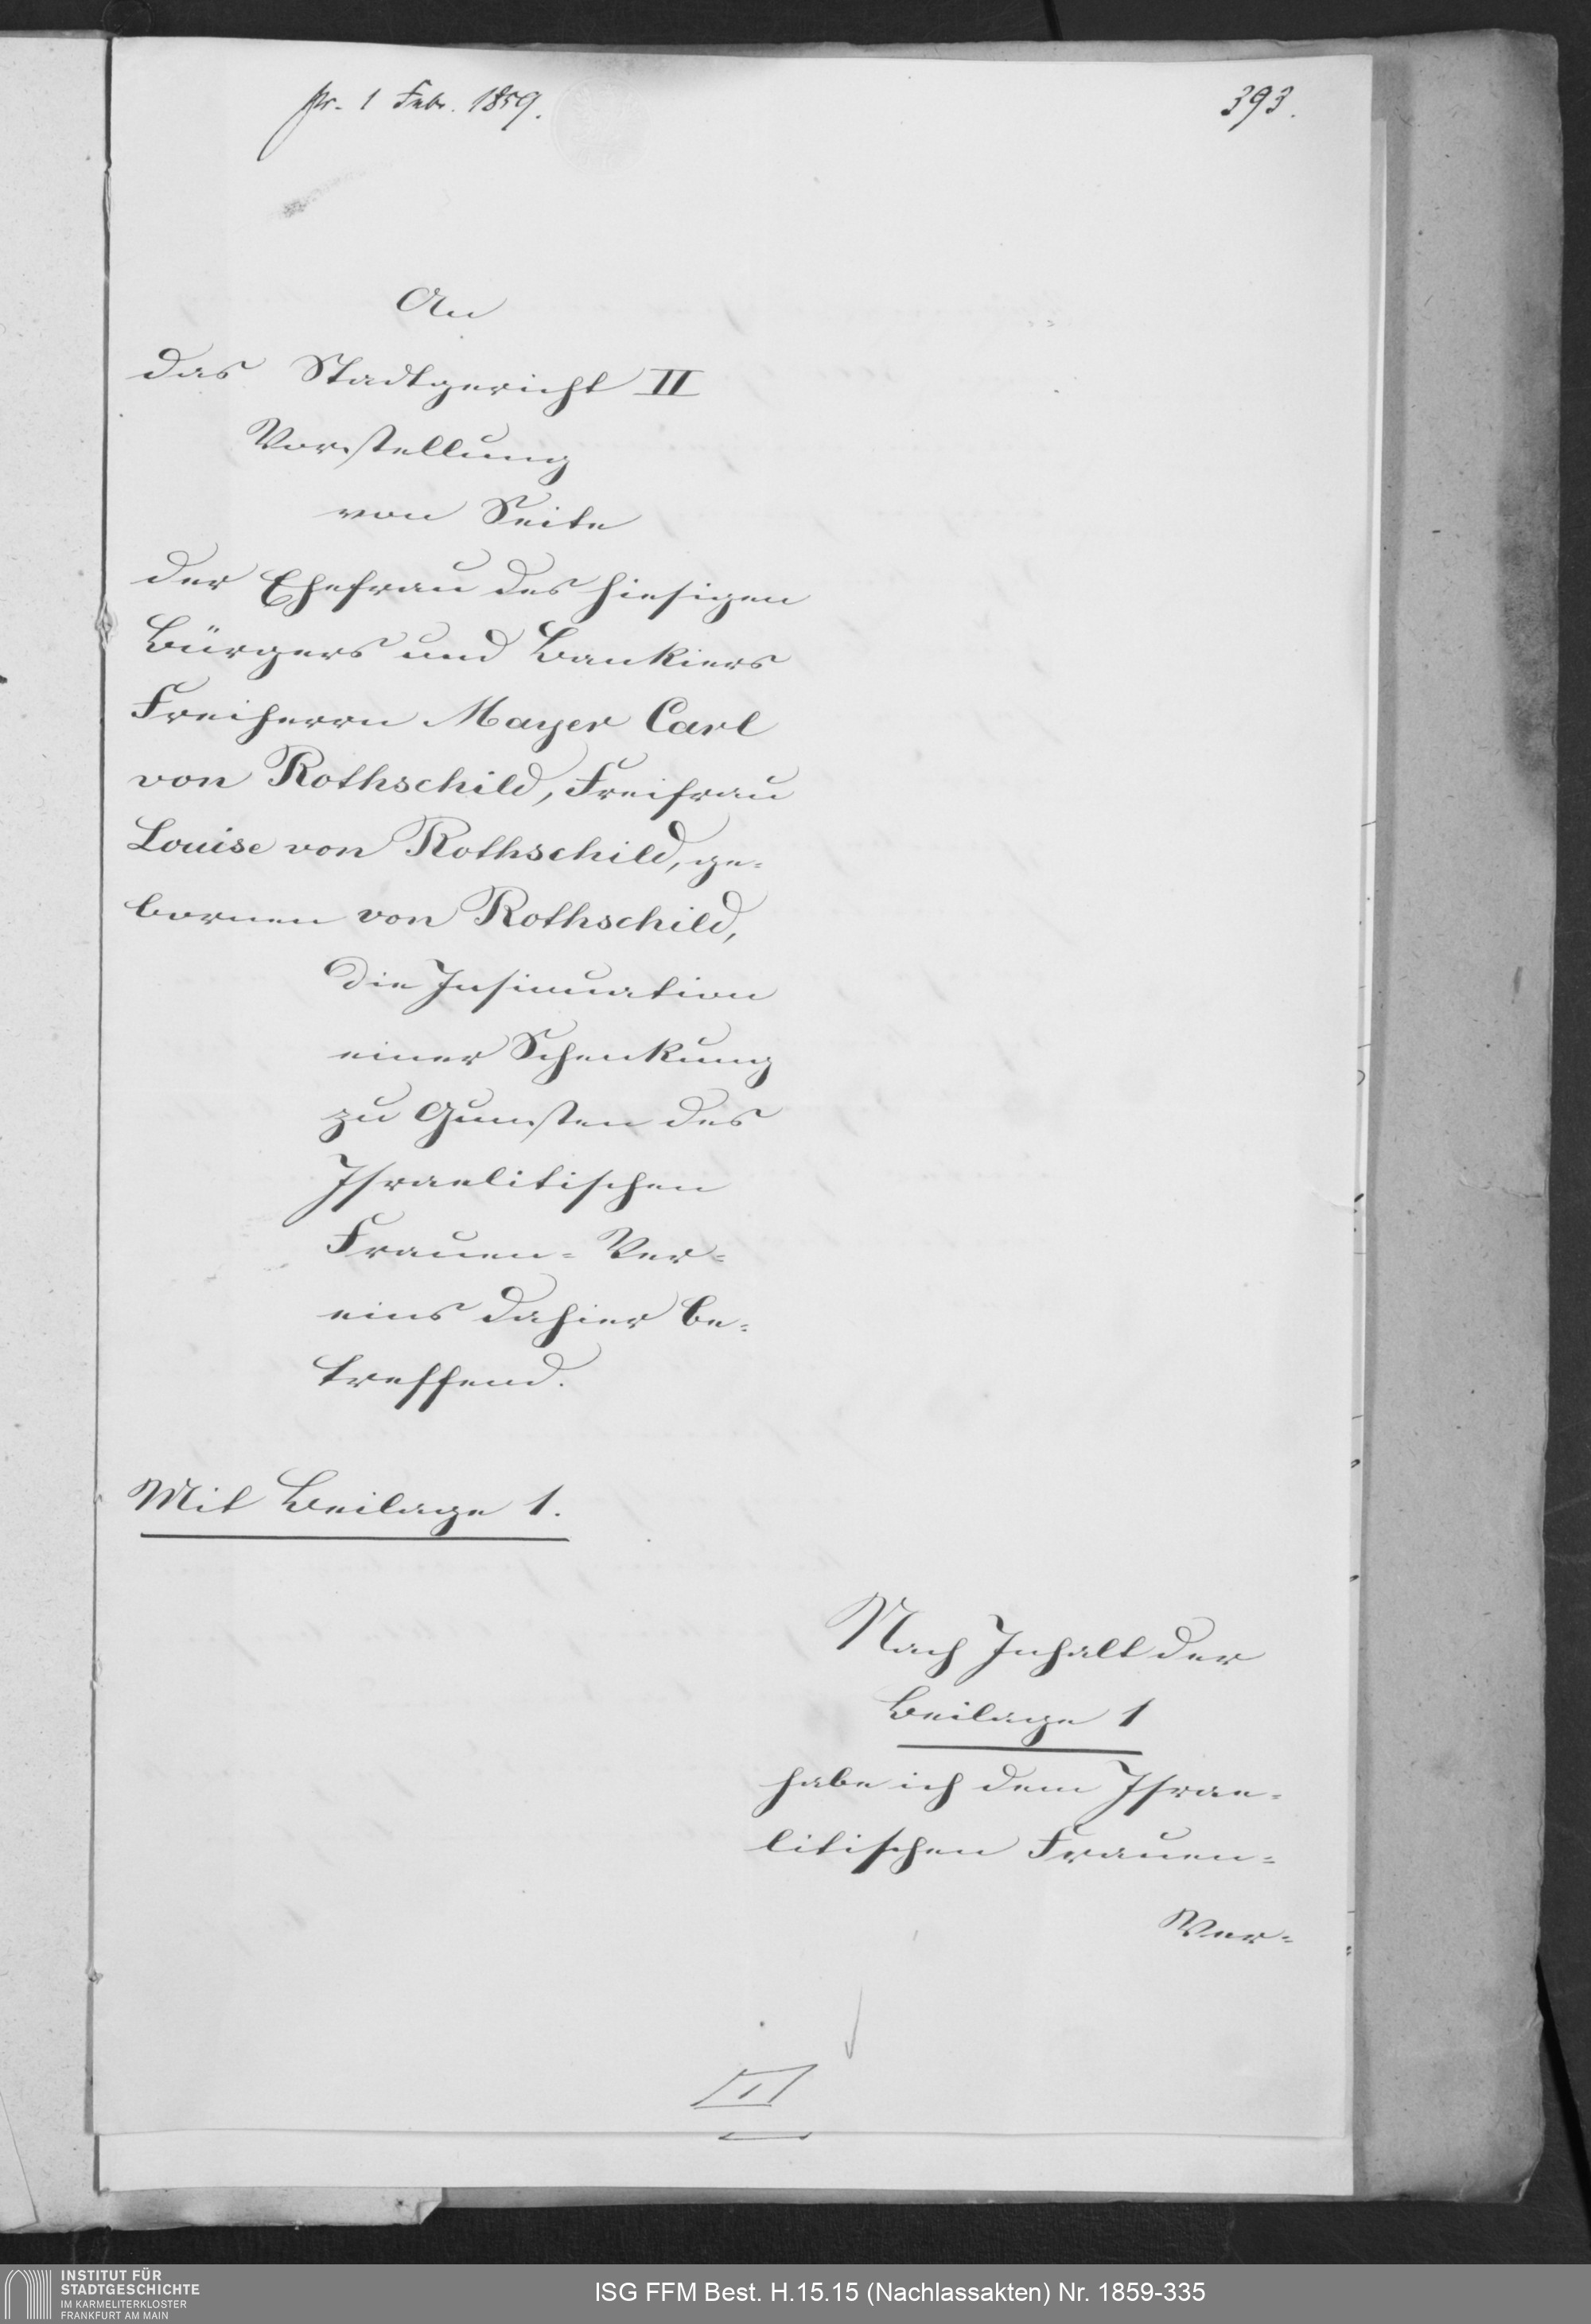 pr. 1 Febr. 1859.
393.
An
das Stadtgericht II
Vorstellung
von Seite
der Ehefrau des hiesigen
Bürgers und Bankiers
Freiherrn Mayer Carl
von Rothschild, Freifrau
Louise von Rothschild, ge-
bornen von Rothschild,
die Insinuation
einer Schenkung
zu Gunsten des
Israelitischen
Frauen-Ver-
eins dahier be-
treffend.
Mit Beilage 1.
Nach Inhalt der
Beilage 1
habe ich dem Israe-
litischen Frauen-
Ver-
INSTITUT FÜR
STADTGESCHICHTE
IM KARMELITERKLOSTER
FRANKFURT AM MAIN
ISG FFM Best. H.15.15 (Nachlassakten) Nr. 1859-335